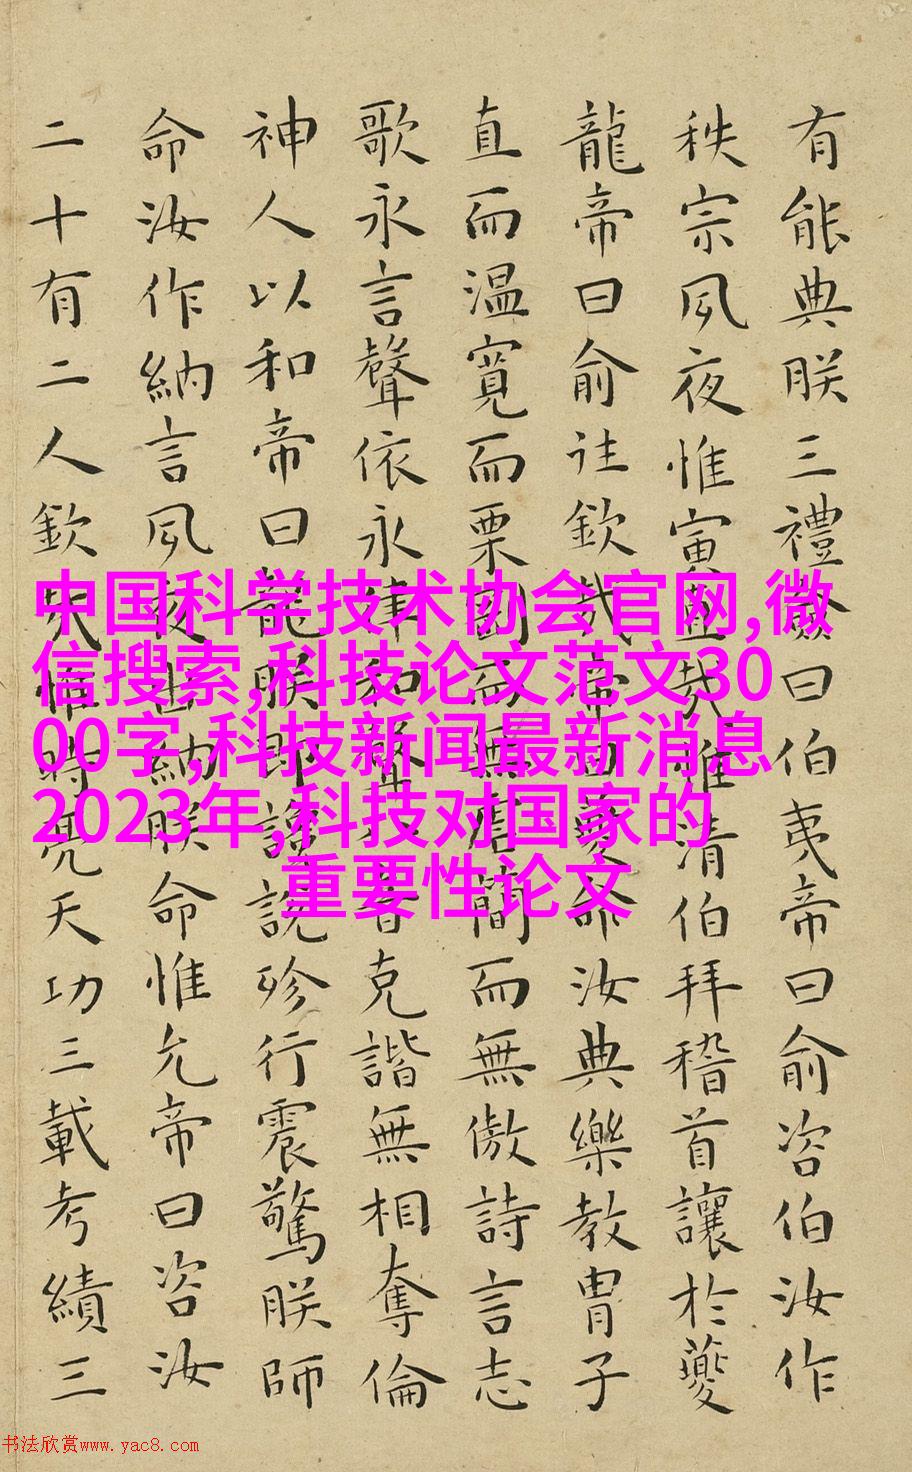 有能典朕三禮僉曰伯夷帝曰俞咨伯汝作
秩宗夙夜惟寅直哉惟清伯拜稽首讓於夔
龍帝曰俞往欽哉帝曰夔命汝典樂教冑子
直而温寬而栗而無虐簡而無傲詩言志
歌永言聲依永律和聲八音克諧無相奪倫
神人以和帝曰龍朕讒説殄行震驚朕師
命汝作納言夙夜出納朕命惟允帝曰咨汝
二十有二人欽哉惟時亮天功三載考績三
中国科学技术协会官网,微
信搜索,科技论文范文30
00字,科技新闻最新消息
2023年,科技对国家的
重要性论文
书法欣赏www.yac8.com